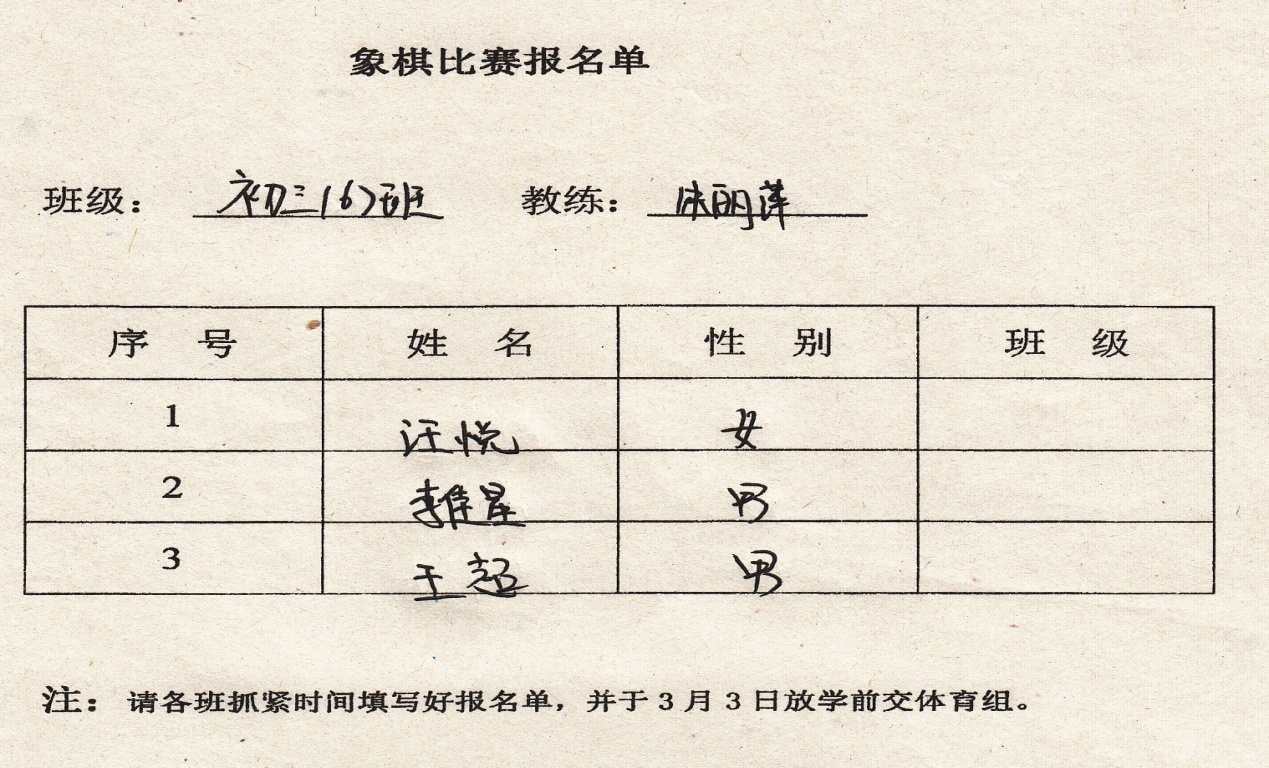 象棋比赛报名单
班级： 初三(6)班 教练： 朱丽萍
序号 姓名 性别 班级
1 汪悦 女
2 李佳星 男
3 王超 男
注：请各班抓紧时间填写好报名单，并于3月3日放学前交体育组。